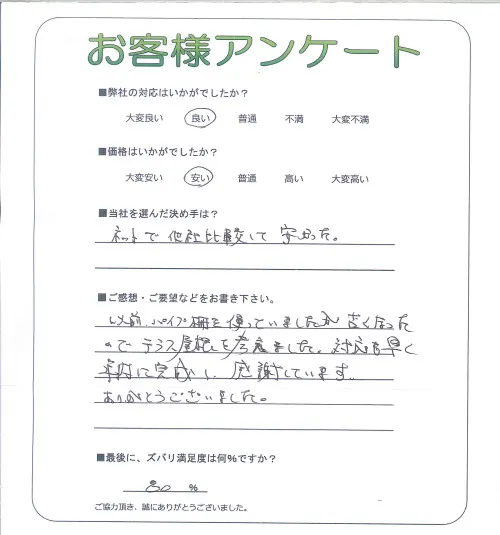 お客様アンケート
■弊社の対応はいかがでしたか？
大変良い 良い 普通 不満 大変不満
■価格はいかがでしたか？
大変安い 安い 普通 高い 大変高い
■当社を選んだ決め手は？
ネットで他社比較して安かった。
■ご感想・ご要望などをお書き下さい。
以前、パイプ棚を使っていましたが古くなった
のでテラス屋根を考えました。対応も早く
に完成し、感謝しています。
ありがとうございました。
■最後に、ズバリ満足度は何%ですか？
80 %
ご協力頂き、誠にありがとうございました。